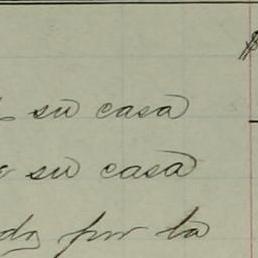 su casa
su casa
por la
$